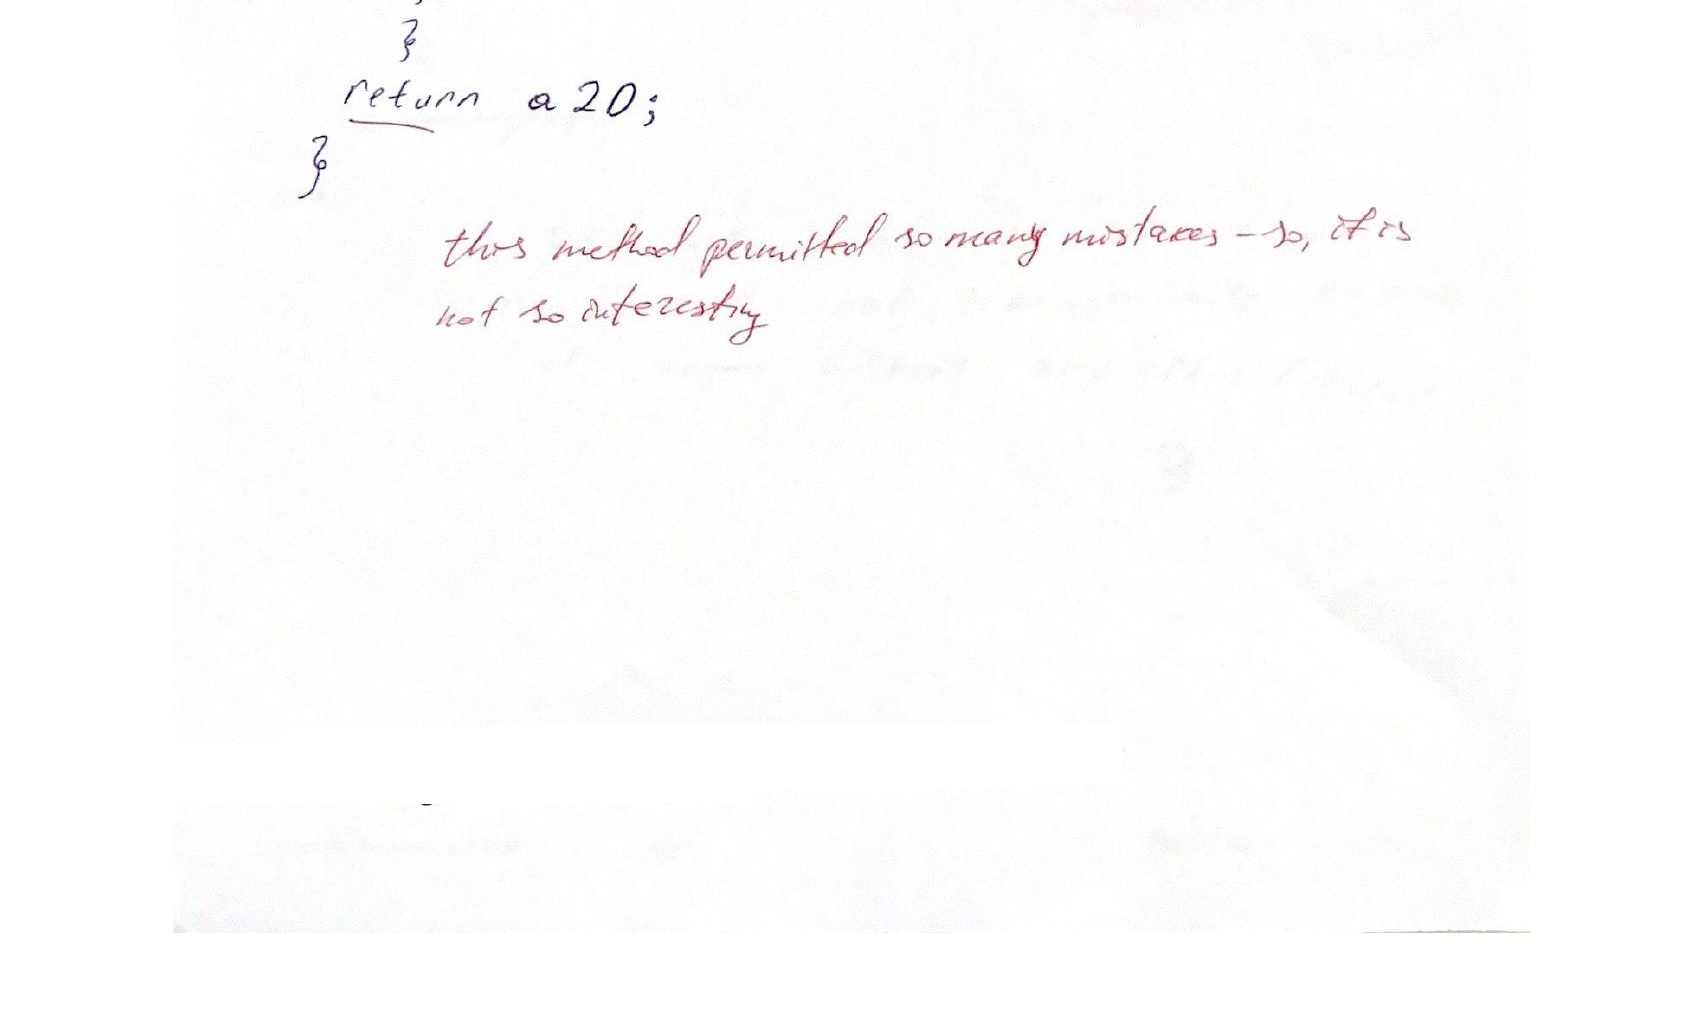 }
return a20;
}
this method permitted so many mistakes – so, it is
not so interesting